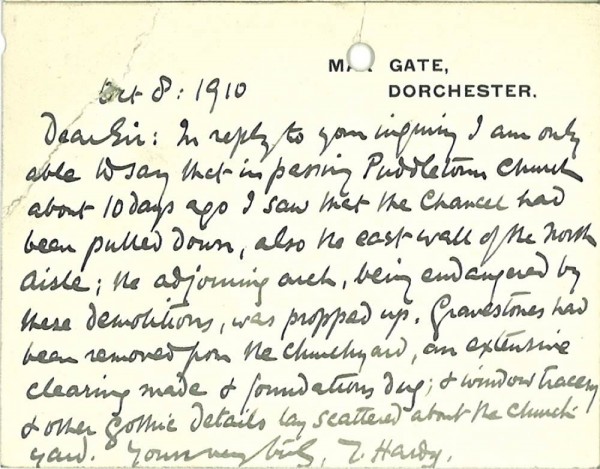 MAX GATE,
DORCHESTER.
Oct 8: 1910
Dear Sir: In reply to your inquiry I am only
able to say that in passing Puddletown Church
about 10 days ago I saw that the Chancel had
been pulled down, also the east wall of the North
Aisle; the adjoining arch, being endangered by
these demolitions, was propped up. Gravestones had
been removed from the churchyard, an extensive
clearing made & foundations dug; & window tracery
& other Gothic details lay scattered about the church-
yard. Yours very truly, T. Hardy.